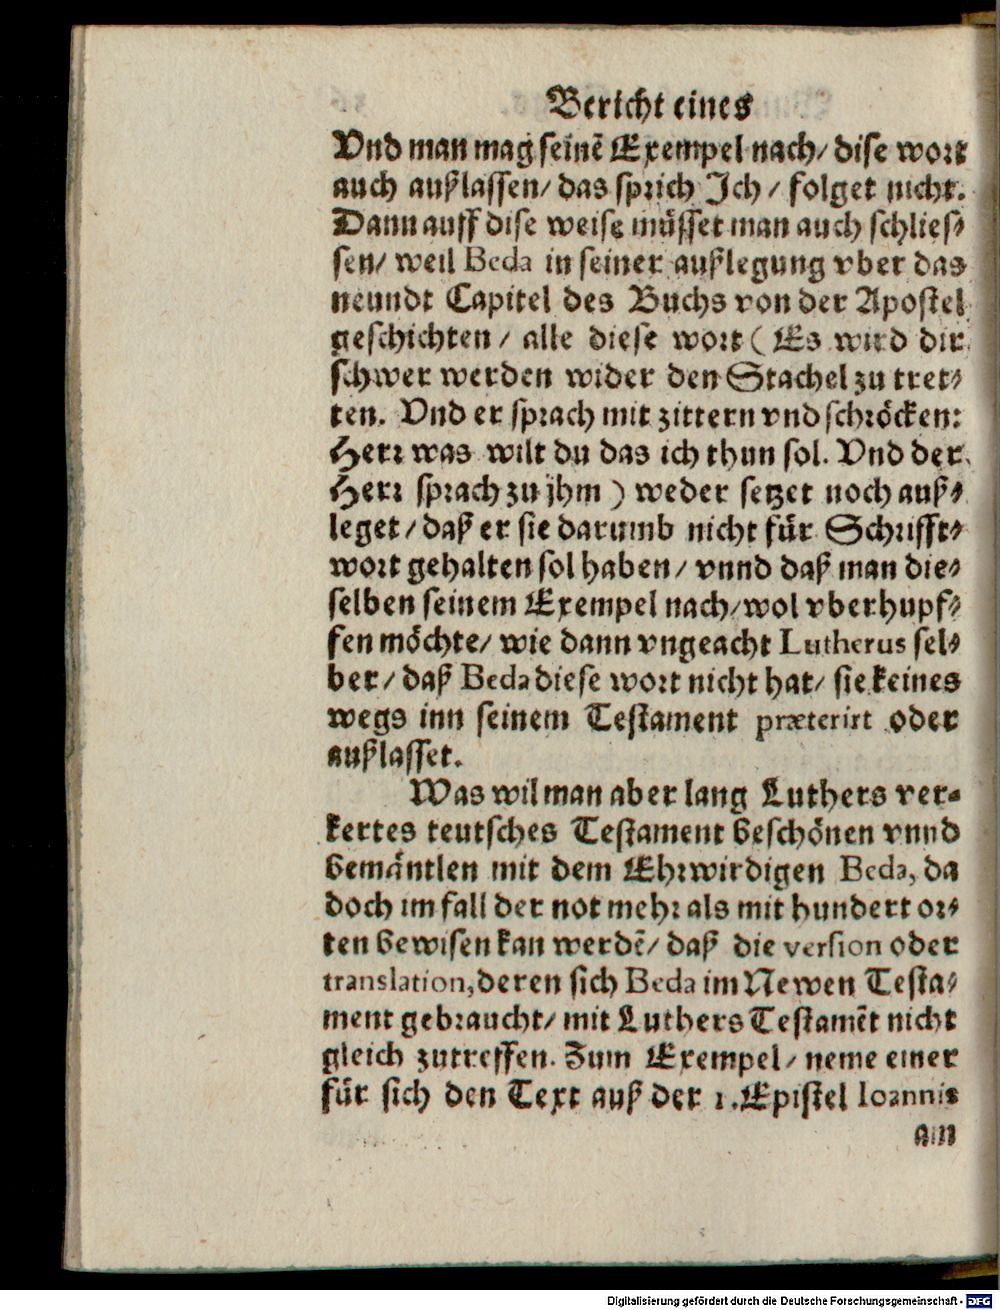 Bericht eines
Vnd man mag seinē Exempel nach/ dise wort
auch außlassen/ das sprich Ich / folget nicht.
Dann auff dise weise müsset man auch schlies⸗
sen/ weil Beda in seiner außlegung vber das
neundt Capitel des Buchs von der Apostel
geschichten / alle diese wort ( Es wird dir
schwer werden wider den Stachel zu tret⸗
ten. Vnd er sprach mit zittern vnd schröcken:
Herr was wilt du das ich thun sol. Vnd der
Herr sprach zu jhm ) weder setzet noch auß⸗
leget / daß er sie darumb nicht für Schrifft⸗
wort gehalten sol haben / vnnd daß man die⸗
selben seinem Exempel nach/ wol vberhupf⸗
fen möchte/ wie dann vngeacht Lutherus sel⸗
ber / daß Beda diese wort nicht hat/ sie keines
wegs inn seinem Testament præterirt oder
außlasset.
Was wil man aber lang Luthers ver⸗
kertes teutsches Testament beschönen vnnd
bemäntlen mit dem Ehrwirdigen Beda, da
doch im fall der not mehr als mit hundert or⸗
ten bewisen kan werdē/ daß die version oder
translation, deren sich Beda im Newen Testa⸗
ment gebraucht/ mit Luthers Testamēt nicht
gleich zutreffen. Zum Exempel / neme einer
für sich den Text auß der 1. Epistel Ioannis
am
Digitalisierung gefördert durch die Deutsche Forschungsgemeinschaft - DFG